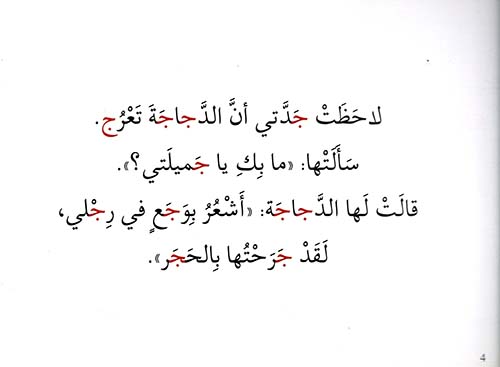 لاحَظَتْ جَدَّتي أنَّ الدَّجاجَةَ تَعْرُج.
سَأَلَتْها: «ما بِكِ يا جَميلَتي؟».
قالَتْ لَها الدَّجاجَة: «أَشْعُرُ بِوَجَعٍ في رِجْلي،
لَقَدْ جَرَحْتُها بِالحَجَر».
4